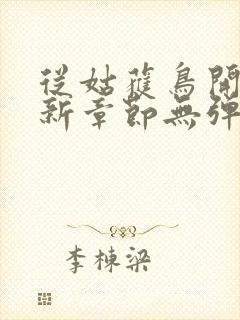 從姑蘿鳥開
新章節無彈
李棟梁